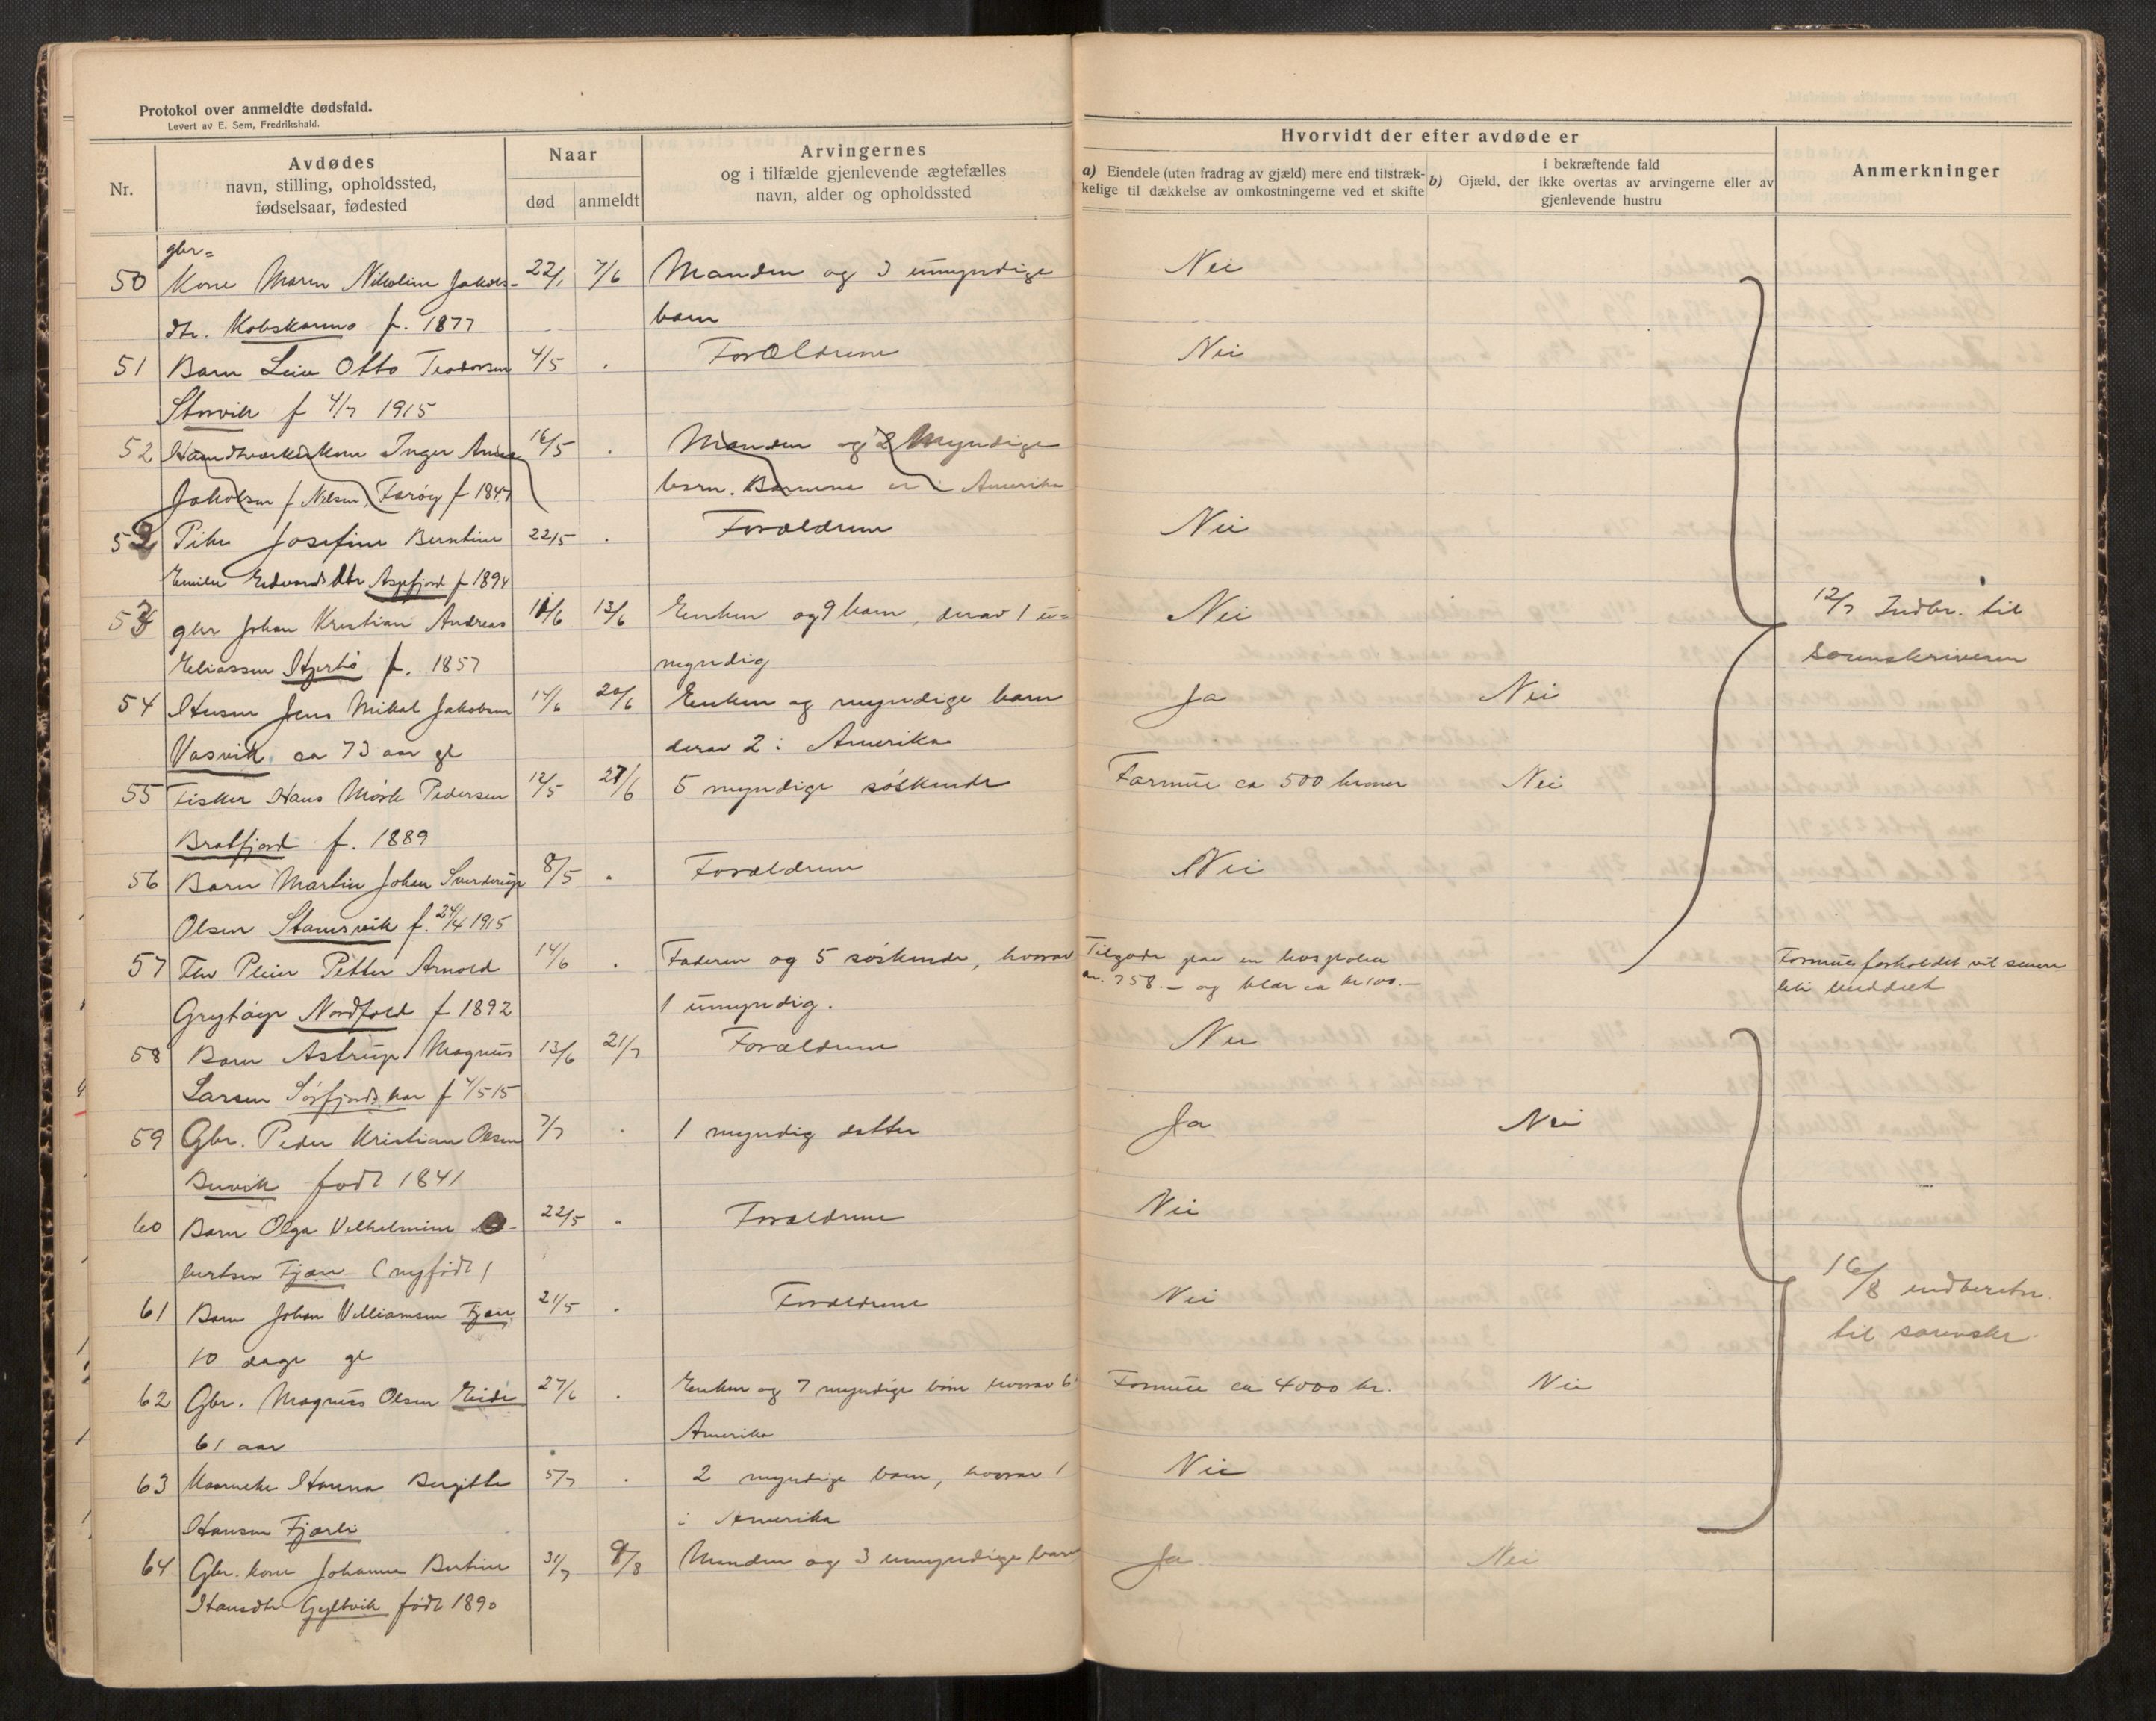 Protokol over anmeldte dødsfald.
Levert av E. Sem, Fredrikshald.
Nr.
Avdødes
navn, stilling, opholdssted,
fødselsaar, fødested
Naar
død
anmeldt
Arvingernes
og i tilfælde gjenlevende ægtefælles
navn, alder og opholdssted
Hvorvidt der efter avdøde er
a) Eiendele (uten fradrag av gjæld) mere end tilstræk-
kelige til dækkelse av omkostningerne ved et skifte
i bekræftende fald
b) Gjæld, der ikke overtas av arvingerne eller av
gjenlevende hustru
Anmerkninger
gbr=
50 Kone Maren Nikoline Jakobs- 22/1 7/6 Manden og 3 umyndige Nei
dtr. Kobskarmo f. 1877 barn
51 Barn Leiv Otto Teodorsen 4/5 . Forældrene Nei
Storvik f 4/7 1915
52 Handtverkerkone Inger Anna 16/5 . Manden og 2 Myndige
Jakobsen f Nilsen, Farøy f 1847 barn. Barnene er i Amerika
52 Pike Josefine Berntine 22/5 . Forældrene Nei
Emilie Edvardsdtr Aspfjord f 1894
53 gbr Johan Kristian Andreas 10/6 13/6 Enken og 9 barn, derav 1 u= Nei 12/7 Indbr. til
Eliassen Hjertø f. 1857 myndig sorenskriveren
54 Husm Jens Mikal Jakobsen 14/6 20/6 Enken og myndige barn Ja Nei
Vasvik ca 73 aar gl derav 2 i Amerika
55 Fisker Hans Mørk Pedersen 12/5 27/6 5 myndige søskende Formue ca 500 kroner Nei
Bratfjord f. 1889
56 Barn Martin Johan Sverdrup 8/5 . Forældrene Nei
Olsen Stamsvik f. 24/4 1915
57 Petter Arnold 14/6 . Faderen og 5 søskende, hvorav Tilgode paa en
kr. 758.- og klær ca kr 100.- Formuesforholdet vil senere
bli meddelt
Grytøyr Nordfold f 1892 1 umyndig.
58 Barn Astrup Magnus 13/6 21/7 Forældrene Nei
Larsen Sørfjordskar f 4/5 15
59 Gbr. Peder Kristian Olsen 7/7 . 1 myndig datter Ja Nei
Buvik født 1841
60 Barn Olga Vilhelmine 22/5 " Forældrene Nei
bertsen Fjære (nyfødt)
61 Barn Johan Villiamsen Fjære 21/5 . Forældrene Nei 16/8 indberetn.
til sorenskr.
10 dage gl
62 Gbr. Magnus Olsen Eide 27/6 . Enken og 7 myndige børn hvorav 6 i Formue ca 4000 kr. Nei
61 aar Amerika
63 Hanna Bergitte 5/7 . 2 myndige barn, hvorav 1 Nei
Hansen Fjærli i Amerika
64 Gbr. kone Johanna Bertine 31/7 9/8 Manden og 3 umyndige barn Ja Nei
Hansdtr Gyltvik født 1890